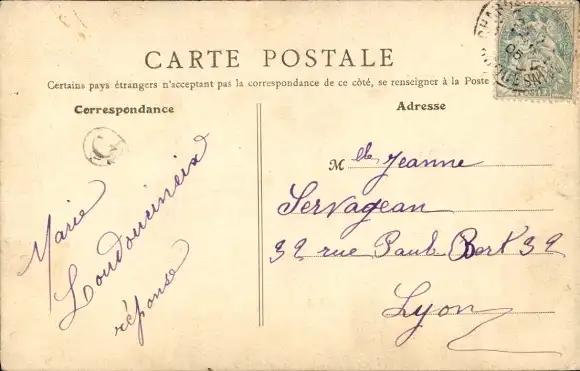 CARTE POSTALE
Certains pays étrangers n'acceptant pas la correspondance de ce côté, se renseigner à la Poste
Correspondance
Adresse
G
Marie
réponse
Mlle Jeanne
Servagean
32 rue Paul Bert 32
Lyon
POSTES